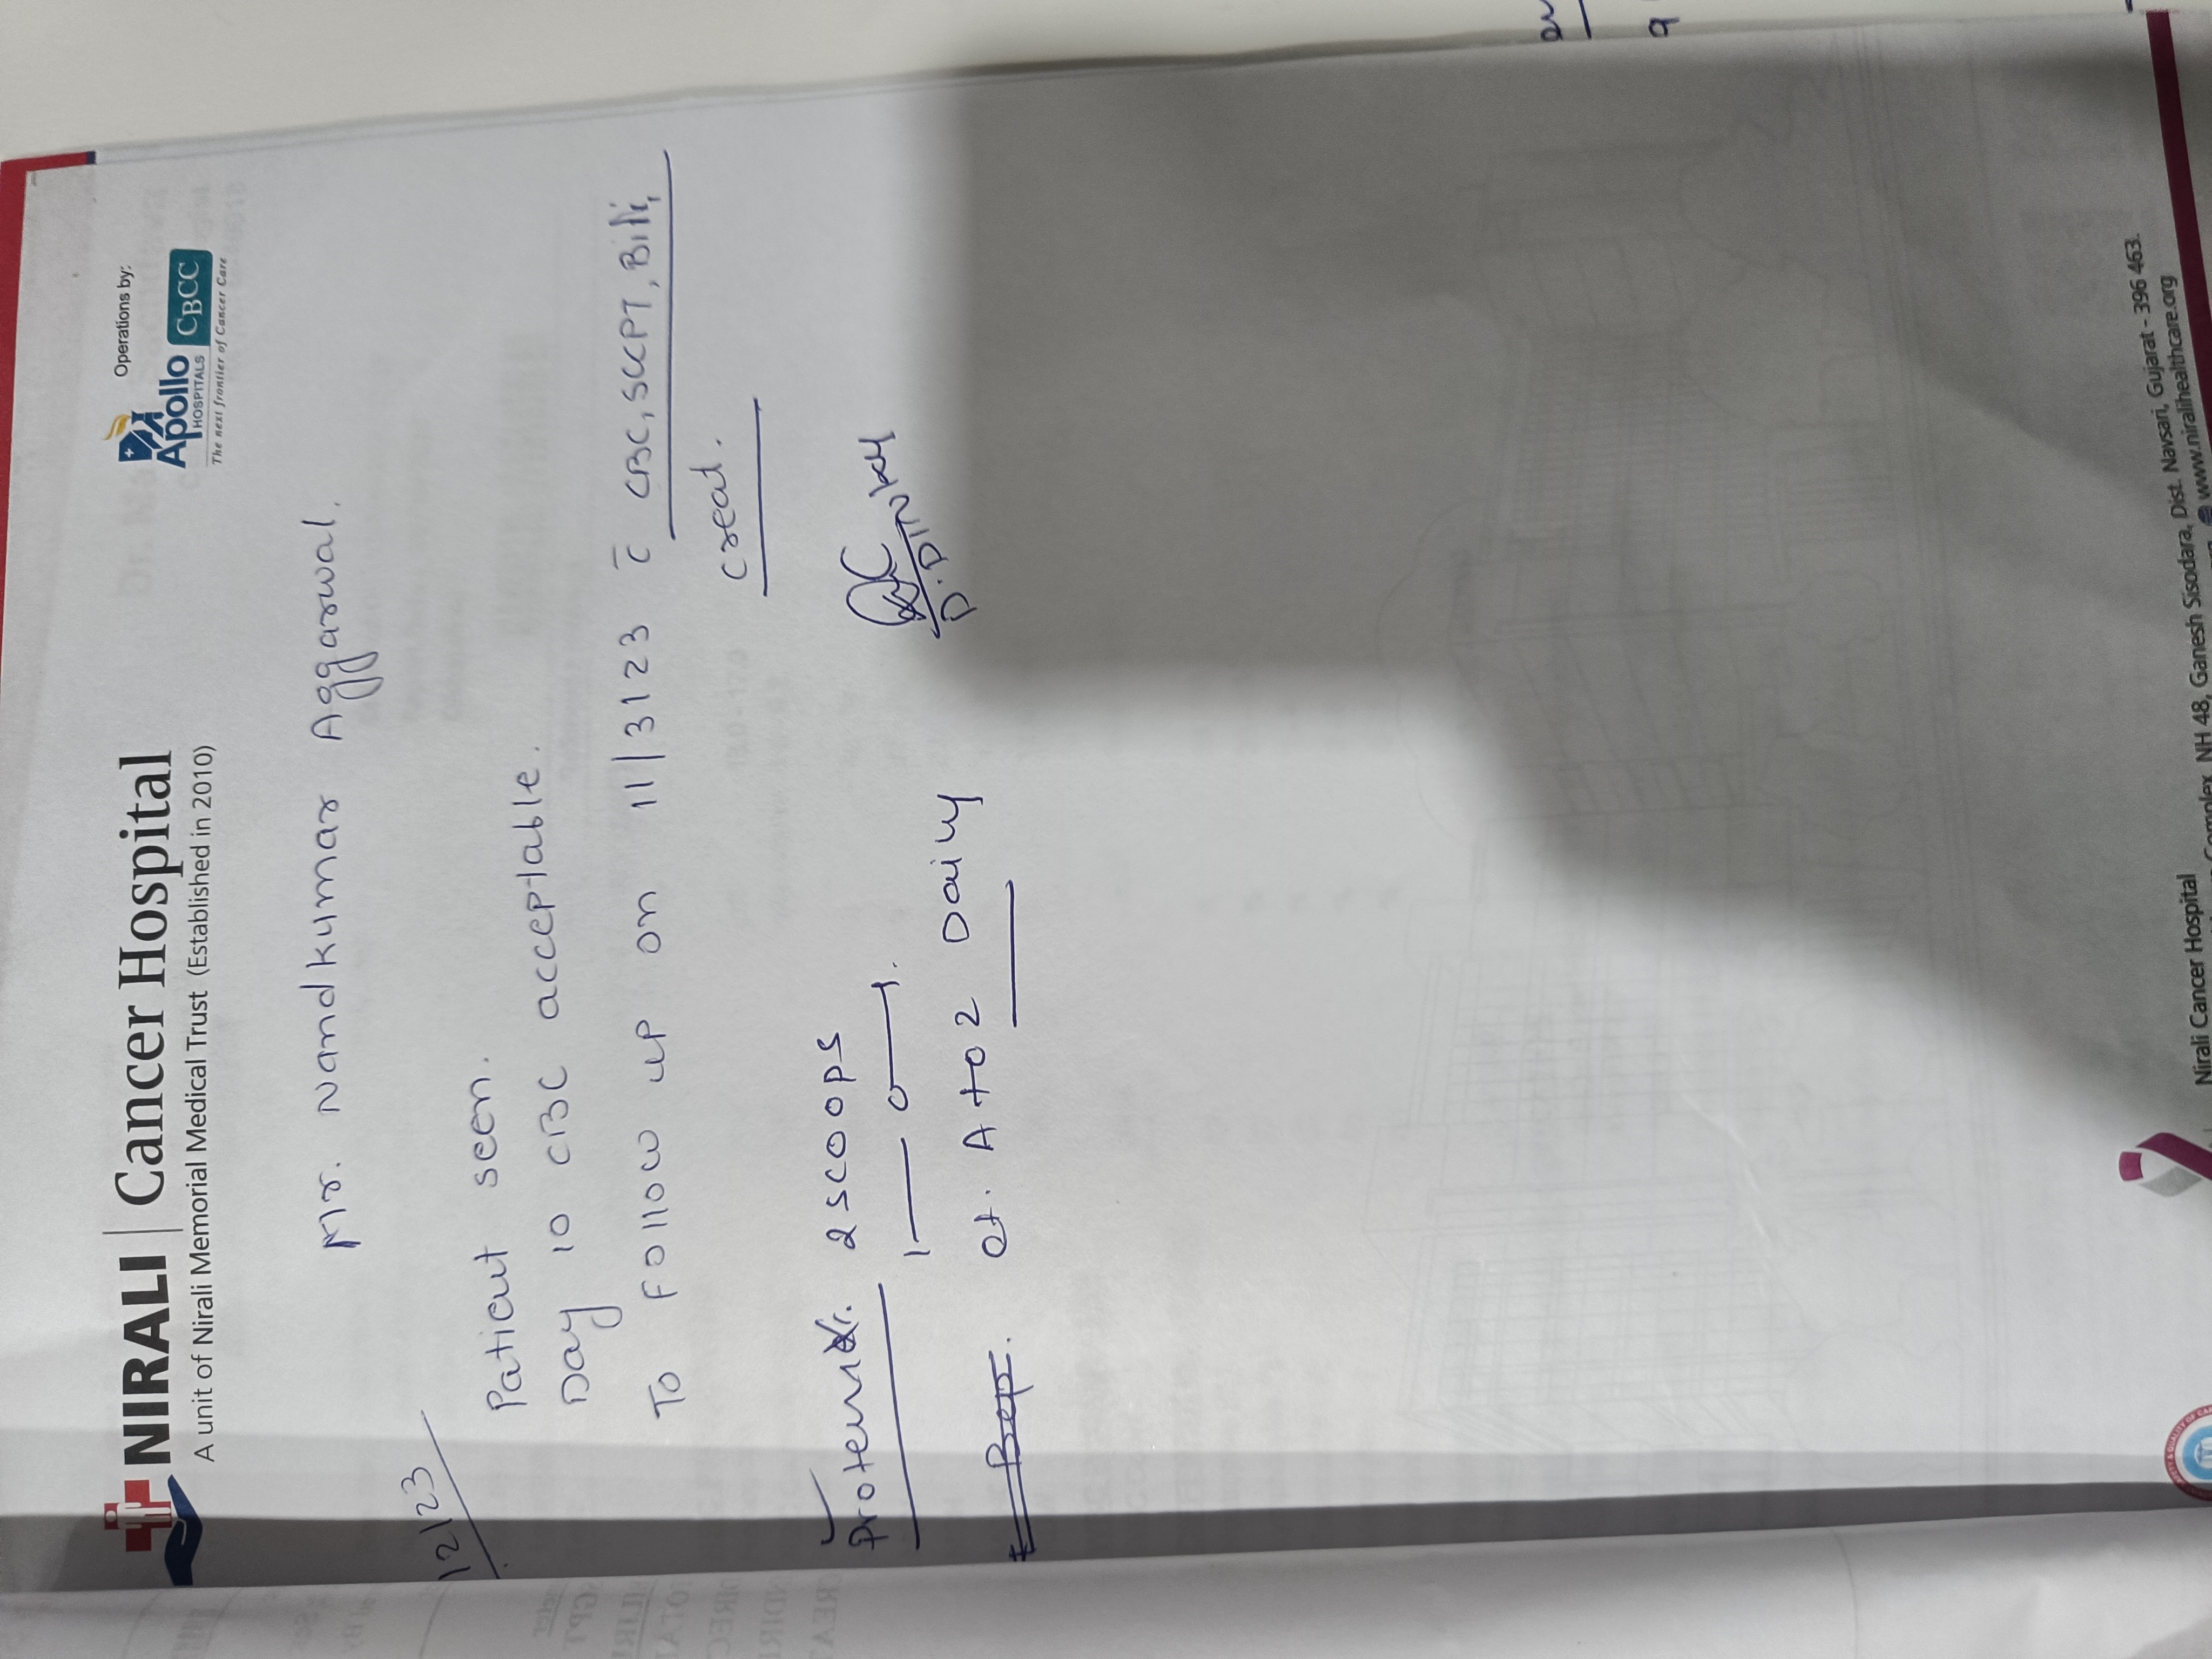 NIRALI | Cancer Hospital
A unit of Nirali Memorial Medical Trust (Established in 2010)
Operations by:
Apollo
HOSPITALS
CBCC
The next frontier of Cancer Care
Mr. Nandkumar Aggarwal.
/2/23
Patient seen.
Day 10 CBC acceptable.
To follow up on 11/3/23 c̄ CBC, SGPT, Bili,
creat.
2 scoops
1 — 0 — 1.
ct. A to Z Daily
D. DINKY
Nirali Cancer Hospital
Complex, NH 48, Ganesh Sisodara, Dist. Navsari, Gujarat - 396 463.
www.niralihealthcare.org